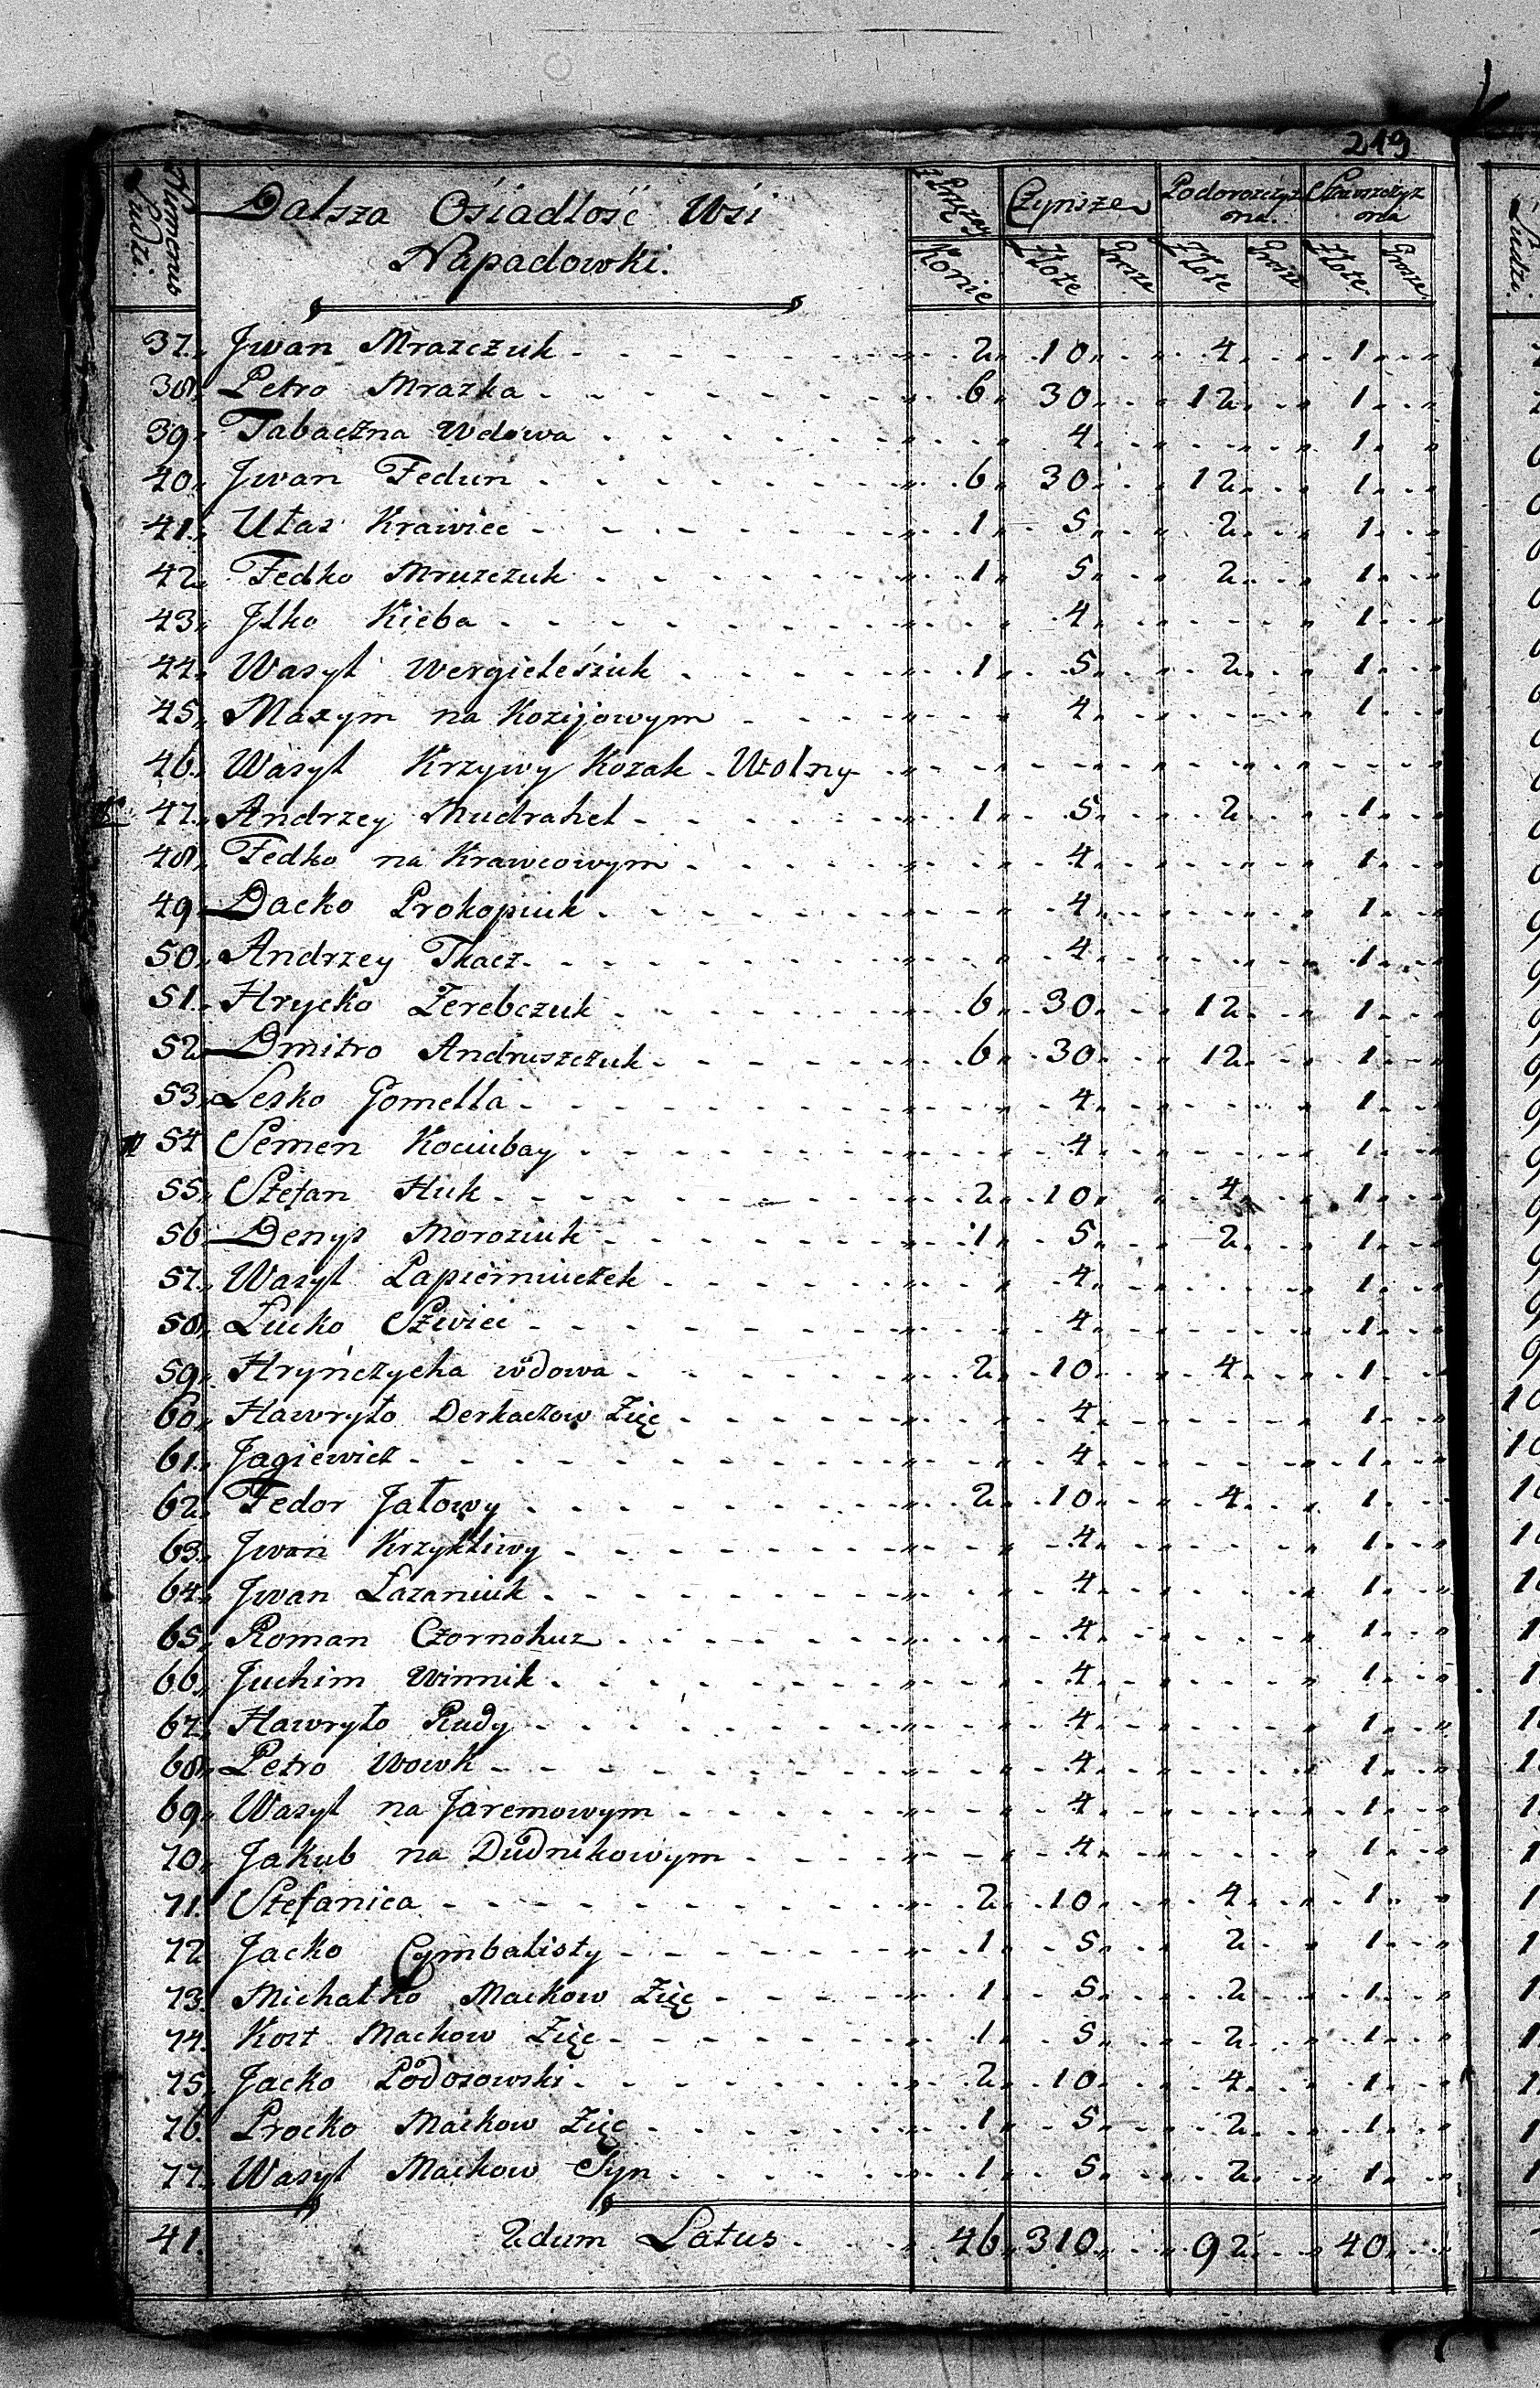 219
Numerus Ludzi. Dalsza Osiadłość Wsi Napadowki. Konie Czynsze Podorożczyzna. Stawszczyzna
Złote Grosze Złote Grosze Złote Grosze
37. Jwan Mrazczuk 2 10 4 1
38 Petro Mrazka 6 30 12 1
39 Tabaczna Wdowa 4 1
40 Jwan Fedun 6 30 12 1
41 Ułas Krawiec 1 5 2 1
42 Fedko Mruzczuk 1 5 2 1
43 Jlko Kieba 4 1
44 Wasyl Wergieleśiuk 1 5 2 1
45 Maxym na Kozijowym 4 1
46 Wasyl Krzywy Kozak Wolny
47 Andrzey Mudrahel 1 5 2 1
48 Fedko na Krawcowym 4 1
49 Dacko Prokopiuk 4 1
50 Andrzey Tkacz 4 1
51 Hrycko Zerebczuk 6 30 12 1
52 Dmitro Andruszczuk 6 30 12 1
53 Lesko Gomella 4 1
54 Semen Kociubay 4 1
55 Stefan Huk 2 10 4 1
56 Denys Moroziuk 1 5 2 1
57 Wasyl Papierniuczek 4 1
58 Lucko Szwiec 4 1
59 Hryńczycha wdowa 2 10 4 1
60 Hawryło Derkaczow Zięc 4 1
61 Jagiewicz 4 1
62 Fedor Jałowy 2 10 4 1
63 Jwan Krzykliwy 4 1
64 Jwan Lazaniuk 4 1
65 Roman Czornohuz 4 1
66 Juchim Winnik 4 1
67 Hawryło Rudy 4 1
68 Petro Wowk 4 1
69 Wasyl na Jaremowym 4 1
70 Jakub na Dudnikowym 4 1
71 Stefanica 2 10 4 1
72 Jacko Cymbalisty 1 5 2 1
73 Michałko Mackow Zięc 1 5 2 1
74 Kost Mackow Zięc 1 5 2 1
75 Jacko Podosowski 2 10 4 1
76 Procko Mackow Zięc 1 5 2 1
77 Wasyl Mackow Syn 1 5 2 1
41. 2dum Latus 46 310 92 40